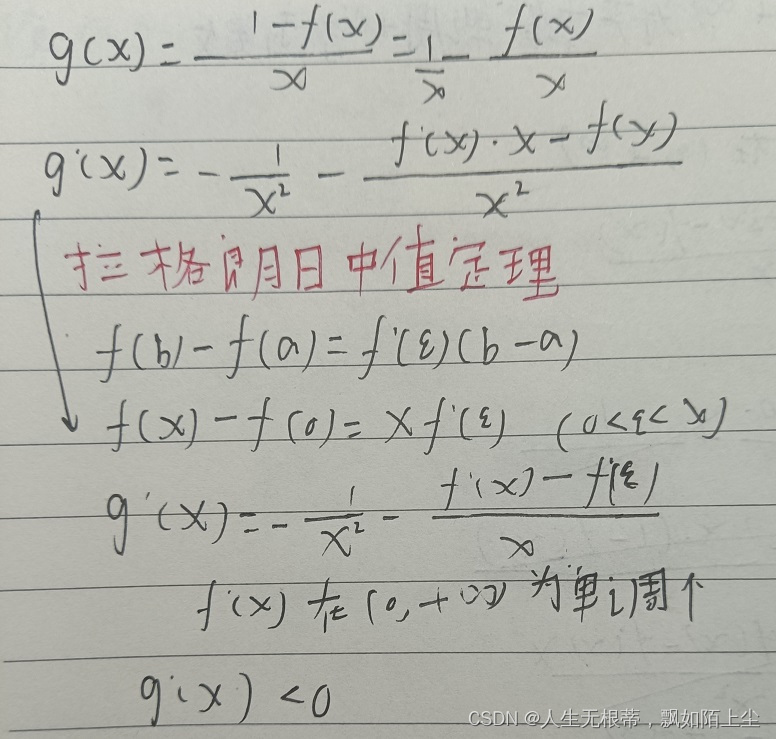 g(x) = (1-f(x))/x = 1/x - f(x)/x
g'(x) = - 1/x² - (f'(x)·x - f(x))/x²
拉格朗日中值定理
f(b) - f(a) = f'(ε)(b-a)
f(x) - f(0) = x f'(ε) (0<ε<x)
g'(x) = - 1/x² - (f'(x) - f'(ε))/x
f'(x) 在 (0,+∞) 为单调个
g'(x) < 0
CSDN @人生无根蒂,飘如陌上尘